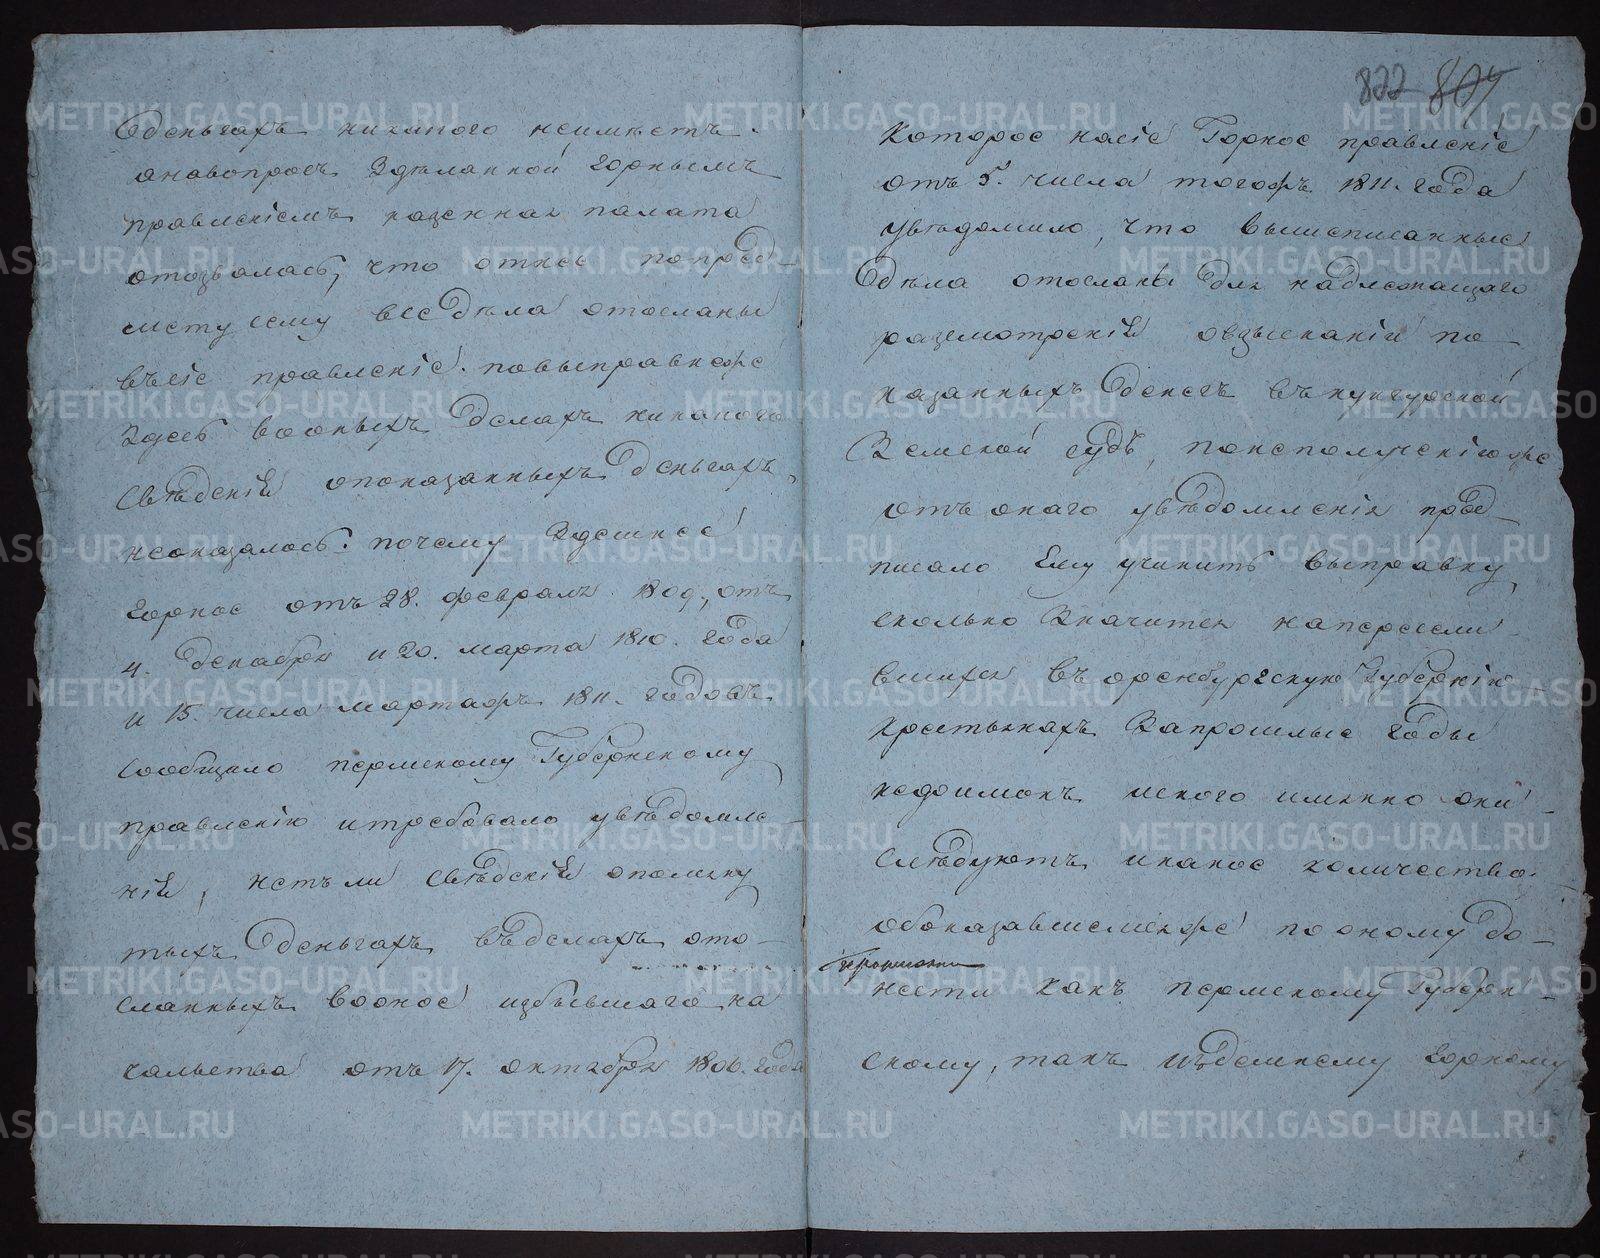 деньгахъ никакого неимѣетъ.
анавопросъ Здѣланной горнымъ
правленіемъ казенная палата
отозвалась, что отнее попред-
мету сему всѣ дѣла отосланы
въсіе правленіе. повыправкеже
Здесь вооныхъ делахъ никакого
Свѣденій опоказанныхъ деньгахъ
неоказалось: почему Здешнее
горное отъ 28. февраля 1809., отъ
4. декабря и 20. марта 1810. года
и 15. числа мартажъ 1811. годовъ
Сообщало пермскому Губернскому
правленію итребовало увѣдомле-
ній, нетъ ли Свѣденій опомяну
тыхъ деньгахъ въделахъ ото-
сланныхъ вооное избывшаго на
чальства отъ 17. октября 1806. года
822 804
Которое насіе Горное правленіе
отъ 5. числа тогожъ 1811. года
увѣдомило, что вышеписанные
дѣла отосланы для надлежащаго
разсмотреній овзысканіи по
казанныхъ денегъ въкунгурской
Земской судъ, понеполученіюже
отъ онаго увѣдомленія пред-
писало Ему учинить выправку,
сколько Значится наперсели
вшихся въоренбургскую Губернію
крестьянахъ Запрошлые годы
недоимокъ иского имянно они
Слѣдуютъ икакое количество.
обоказавшемсяже поономудо-
нести какъ пермскому Губерн-
скому, такъ издешнему горному
METRIKI.GASO-URAL.RU